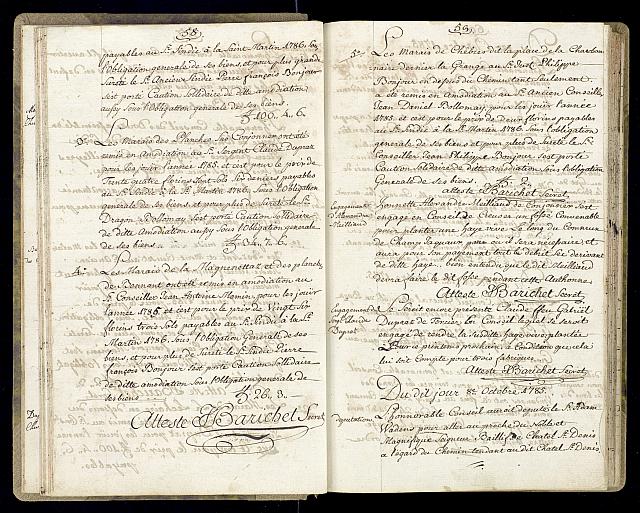 58.
payables au Sr. Sindic à la Saint Martin 1786, Sous
l'obligation generale de ses biens, et pour plus grande
Sureté le Sr. Ancien Sindic Pierre françois Bonjour
s'est porté Caution Sollidaire de ditte amodiation
aussy sous l'obligation generale de ses biens.
f. 100. 4. 6.
3o. Les Marais des Planches du Conjonnens ont été
remis en amodiation au Sr. Sergent Claude Duprat
pour les jouir l'année 1785. et c'est pour le prix de
Trente quatre florins sept sols six deniers payables
au Sr. Sindic à la St. Martin 1786. Sous l'obligation
generale de ses biens et pour plus de Sureté le Sr.
Dragon Bollomay s'est porté Caution Sollidaire
de ditte amodiation aussy sous l'obligation generale
de ses biens.
f. 34. 7. 6.
4o. Les Marais de la Maguenettaz et des planches
de Bennaut ont été remis en amodiation pour les jouir
au Sr. Conseiller Jean Antoine
l'année 1785 et c'est pour le prix de Vingt Six
florins trois Sols payables au Sr. Sindic à la St.
Martin 1786. Sous l'obligation Generalle de ses
biens, et pour plus de Sureté le Sr. Sindic Pierre
françois Bonjour s'est porté Caution Sollidaire
de ditte amodiation Sous l'obligation generale de
ses biens
f. 26. 3.
Atteste Barichet Secret.
59.
5o. Les Marais de Chesies dit la place de la Charbon
naire dernier la Grange au Sr. Just Philippe
Bonjour en dessus du Chemin tant Seulement,
a été remis en Amodiation au Sr. Ancien Conseiller
Jean Daniel Bollomay, pour les jouir l'année
1785. et c'est pour le prix de deux florins payables
au Sr. Sindic à la St. Martin 1786. Sous l'obligation
generale de ses biens et pour plus de Sureté le Sr.
Conseiller Jean Philippe Bonjour s'est porté
Caution Solidaire de ditte amodiation Sous l'obligation
Generale de ses biens.
f. 2.
Atteste Barichet Secret.
Engagement
d'Alexandre
Meilliaud
honnette Alexandre Meilliaud de s'est
engagé en Conseil de Creuser un fossé Convenable
pour planter une haye vive Le long du Commun
de Champ Jaquaux pour où il sera nécessaire, et
aura pour son payement tout le debit Sec derivant
de ditte haye. bien entendu que le dit Meilliaud
devra faire le dit fossé pendant cette Authonne.
Atteste Barichet Secret.
Engagement de
Claude
Duprat
Le Soir entre presenté Claude ffeu Gabriel
Duprat de Conseil lequel se seroit
engagé de rendre la Susditte haye vive plantée
prontems prochain, à Condition que cela
lui soit Compté pour trois fabriques.
Atteste Barichet Secret.
Du dit jour 8e. Octobre 1785.
deputation
L'honnorable Conseil auroit deputé le Sr. Adam
Wadens pour aller au proche du Noble et
Magnifique Seigneur Baillif de Chatel St. Denis
à l'egard du Chemin tendant au dit Chatel St. Denis